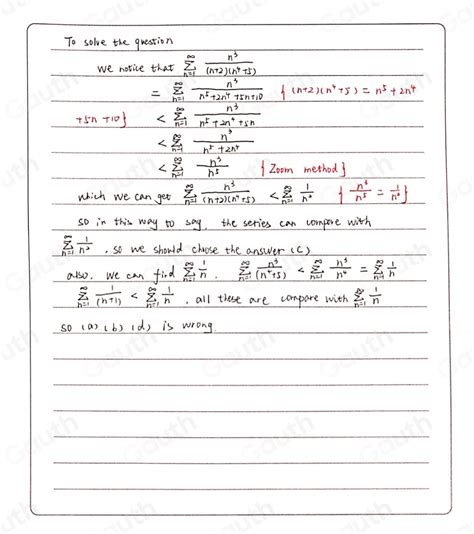 To solve the question
we notice that ∑_{n=1}^{∞} n³/((n+2)(n⁴+5))
= ∑_{n=1}^{∞} n³/(n⁵+2n⁴+5n+10) { (n+2)(n⁴+5) = n⁵+2n⁴
+5n+10} < ∑_{n=1}^{∞} n³/(n⁵+2n⁴+5n)
< ∑_{n=1}^{∞} n³/(n⁵+2n⁴)
< ∑_{n=1}^{∞} n³/n⁵ { Zoom method }
which we can get ∑_{n=1}^{∞} n³/((n+2)(n⁴+5)) < ∑_{n=1}^{∞} 1/n² { n³/n⁵ = 1/n² }
so in this way to say, the series can compare with
∑_{n=1}^{∞} 1/n², so we should choose the answer (C)
also. we can find ∑_{n=1}^{∞} 1/n, ∑_{n=1}^{∞} n³/(n⁴+5) < ∑_{n=1}^{∞} n³/n⁴ = ∑_{n=1}^{∞} 1/n
∑_{n=1}^{∞} 1/(n+1) < ∑_{n=1}^{∞} 1/n, all these are compare with ∑_{n=1}^{∞} 1/n
so (a) (b) (d) is wrong.
Gauth